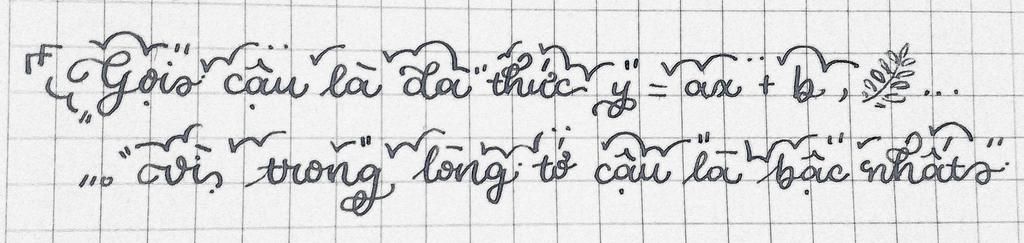 Gọi cậu là đa thức y = ax + b, ...
... vì trong lòng tớ cậu là bậc nhất